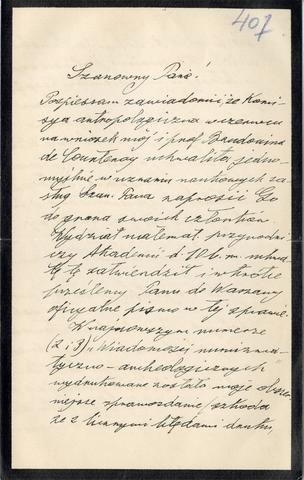 407
Szanowny Panie!
Pospieszam zawiadomić, że Komi-
sya antropologiczna w czerwcu
na wniosek mój i prof. Baudouina
de Courtenay uchwaliła jedno-
myślnie w uznaniu naukowych za-
sług Szan. Pana zaprosić Go
do grona swoich członków.
Wydział matemat. przyrodni-
czy Akademii d. 10 b. m. uchwa-
łę tę zatwierdził i wkrótce
prześlemy Panu do Warszawy
oficyalne pismo w tej sprawie.
W najnowszym numerze
(2 i 3) „Wiadomości numizma-
tyczno-archeologicznych
wydrukowane zostało moje obszer-
niejsze sprawozdanie (szkoda
że z licznymi błędami druku,